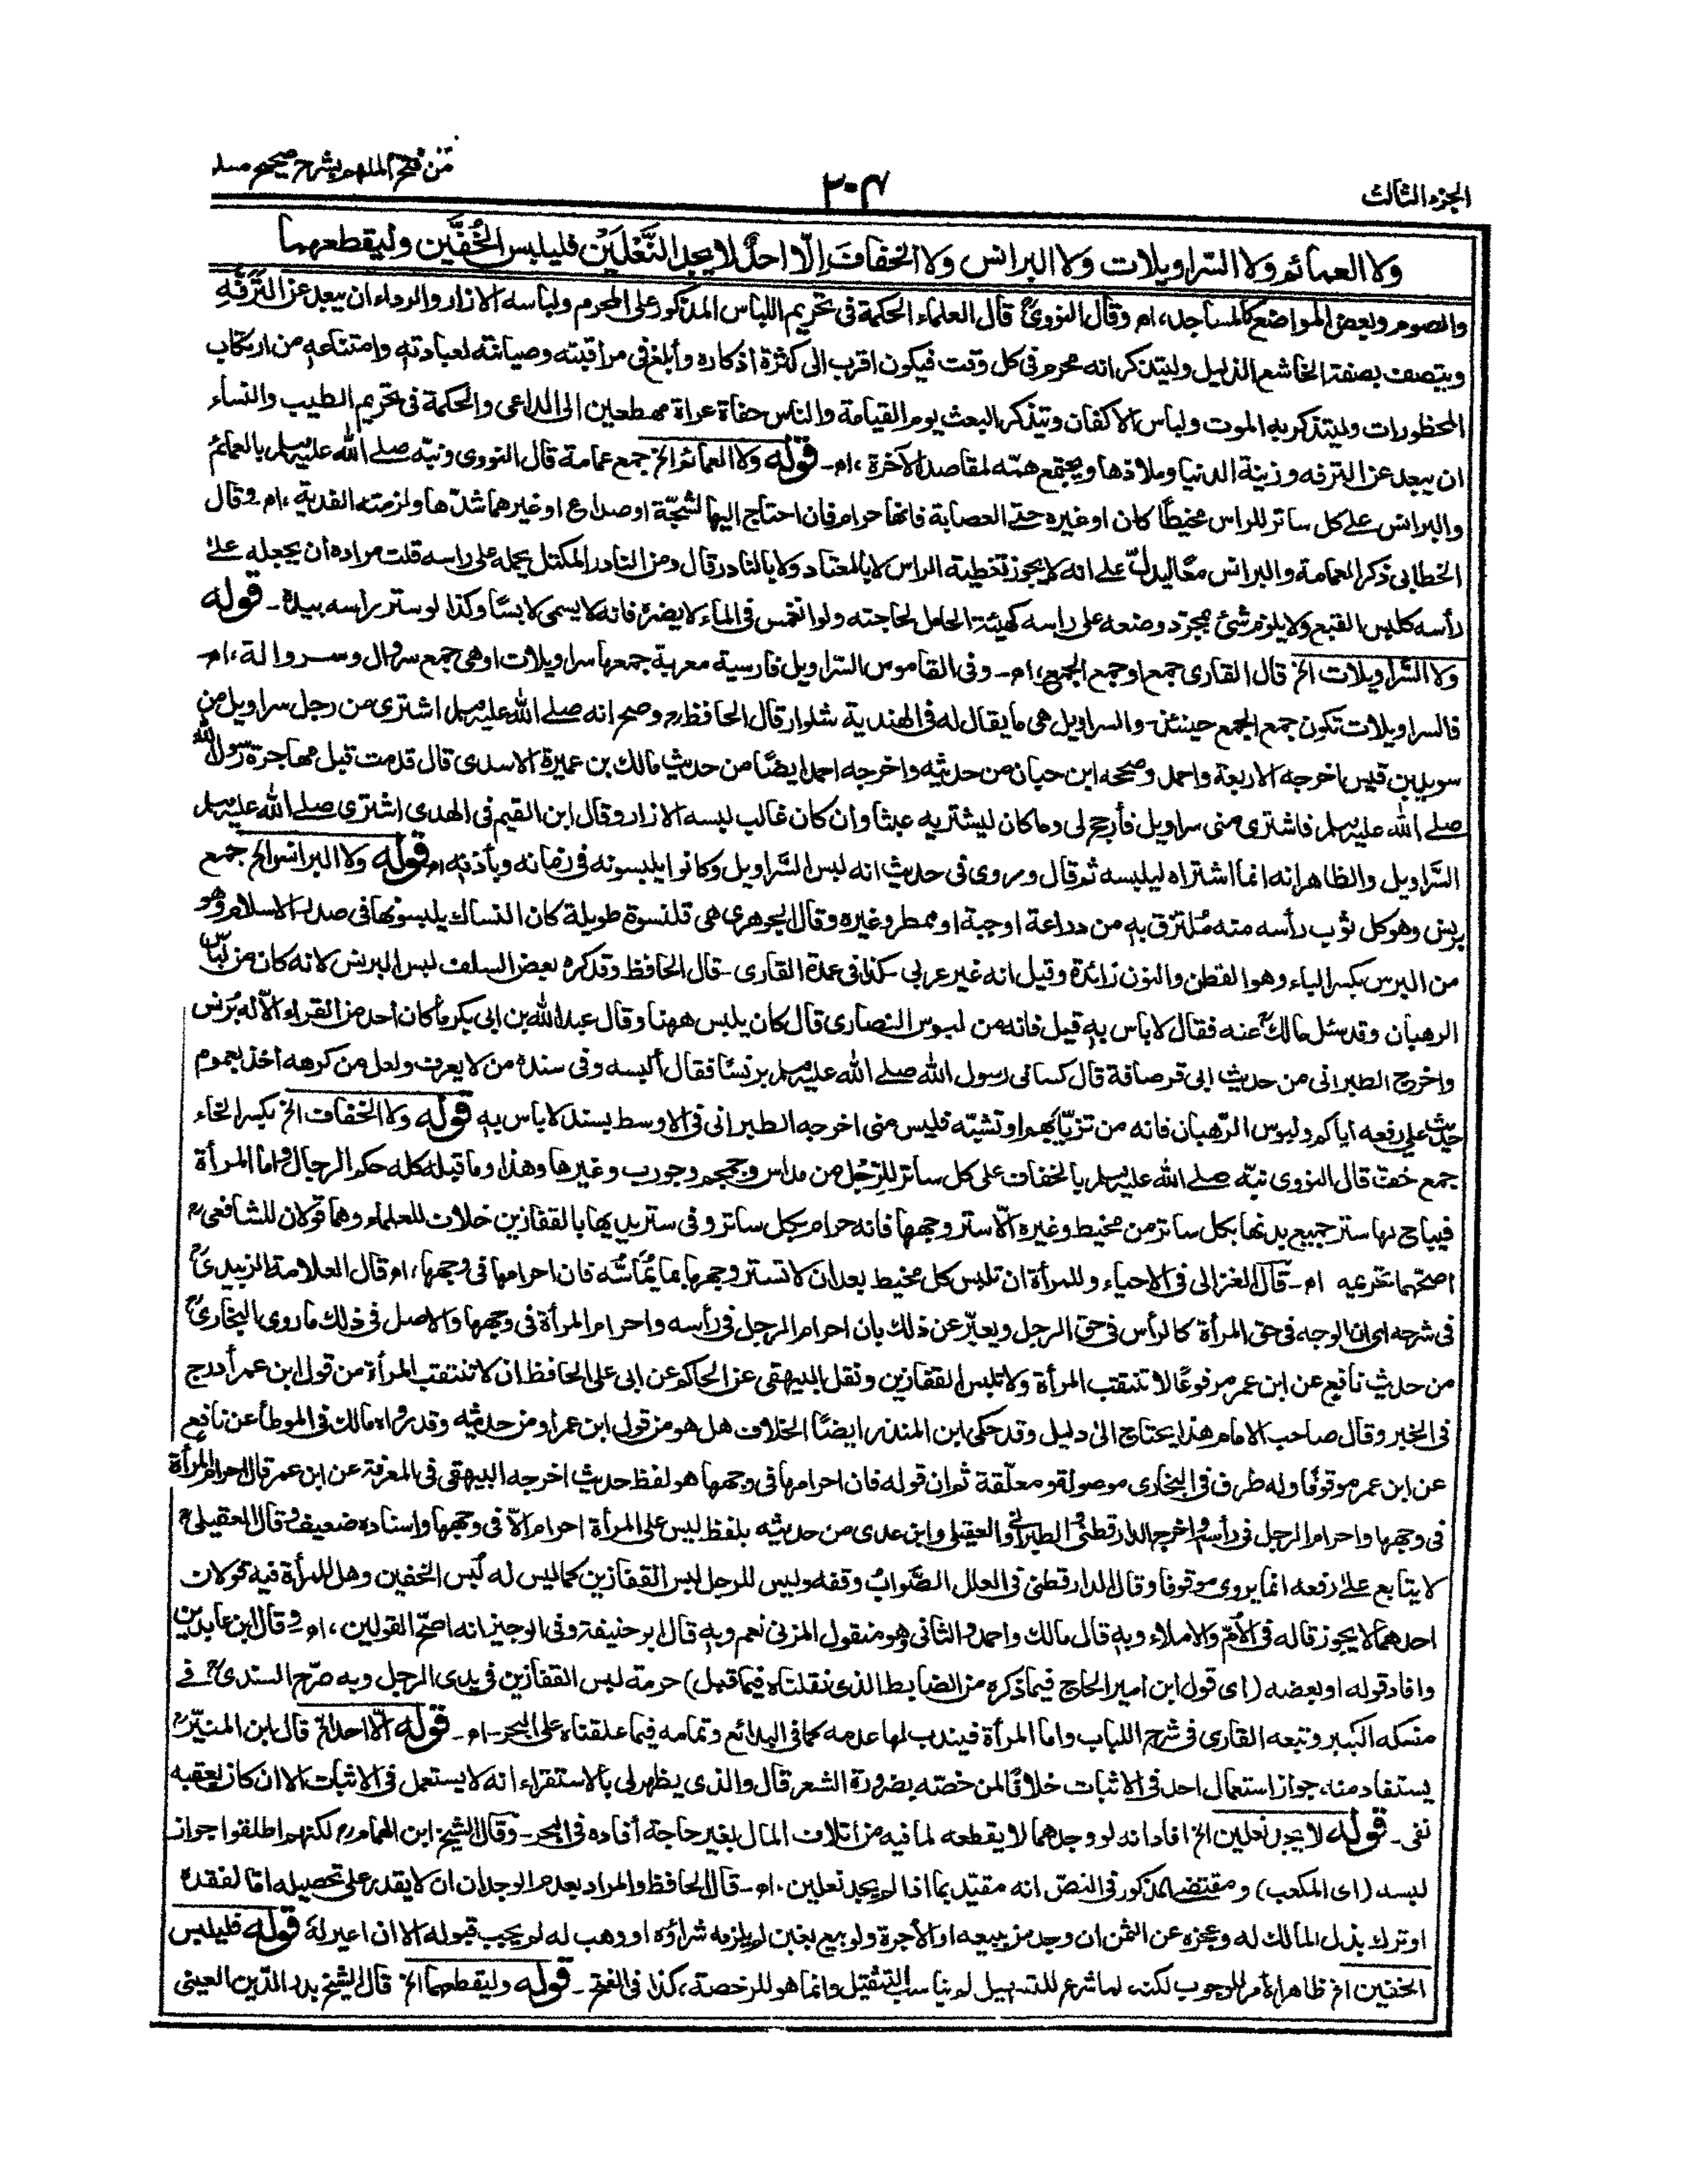 الجزء الثالث
٣٠٤
من فتح الملهم بشرح صحيح مسلم
ولا العمائم ولا السّراويلات ولا البرانس ولا الخفافَ إلّا احدٌ لا يجد النَّعْلَيْن فليلبس الخُفَّين وليقطعهما
والصوم وبعض المواضع كالمساجد، اه وقال النووىؒ قال العلماء الحكمة فى تحريم اللباس المذكور على المحرم ولباسه الازار والرداء ان يبعد عن التَّرَفُّهِ
ويتصف بصفة الخاشع الذليل وليتذكر انه محرم فى كل وقت فيكون اقرب الى كثرة اذكاره وأبلغ فى مراقبته وصيانته لعبادتهٖ وامتناعهٖ من ارتكاب
المحظورات وليتذكر به الموت ولباس الاكفان ويتذكر البعث يوم القيامة والناس حفاة عراة مهطعين الى الداعى والحكمة فى تحريم الطيب والنساء
ان يبعد عن الترفه وزينة الدنيا وملاذها ويجتمع همّه لمقاصد الآخرة، اه۔ قوله ولا العمائم الخ جمع عمامة قال النووى ونبّه صلے الله عليه وسلم بالعمائم
والبرانس على كل ساتر للراس مخيطًا كان او غيره حتى العصابة فانها حرام فان احتاج اليها لشجّة او صداع او غيرهما شدّها ولزمته الفدية، اه۔ وقال
الخطابى ذكر العمامة والبرانس معًا ليدلّ على انه لا يجوز تغطية الراس لا بالمعتاد ولا بالنادر قال ومن النادر المكتل يحمله على راسه قلت مراده أن يجعله على
رأسه كلبس القبع ولا يلزم شئ بمجرّد وضعه على راسه كهيئة الحامل لحاجته ولو انغمس فى الماء لا يضره فانه لا يسمى لابسًا وكذا لو ستر راسه بيده۔ قوله
ولا السّراويلات الخ قال القارى جمع او جمع الجمع، اه۔ وفى القاموس السّراويل فارسية معربة جمعها سراويلات او هى جمع سروال وسروالة، اه۔
فالسراويلات تكون جمع الجمع حينئذ۔ والسراويل هى ما يقال له فى الهندية شلوار قال الحافظ رح وصح انه صلے الله عليه وسلم اشترى من رجل سراويل من
سويد بن قيس اخرجه الاربعة واحمد وصححه ابن حبان من حديثه واخرجه احمد ايضًا من حديث مالك بن عميرة الاسدى قال قدمت قبل مهاجرة رسول الله
صلے الله عليه وسلم فاشترى منى سراويل فأرجح لى وما كان ليشتريه عبثا وان كان غالب لبسه الازار وقال ابن القيم فى الهدى اشترى صلے الله عليه وسلم
السَّراويل والظاهر انه انما اشتراه ليلبسه ثم قال وروى فى حديث انه لبس السَّراويل وكانوا يلبسونه فى زمانه وبأذنه اه قوله ولا البرانس الخ جمع
برنس وهو كل ثوب رأسه منه مُلتزق به من دراعة او جبة او ممطر وغيره وقال الجوهرى هى قلنسوة طويلة كان النساك يلبسونها فى صدر الاسلام وهو
من البرس بكسر الباء وهو القطن والنون زائدة وقيل انه غير عربى كذا فى عمدة القارى۔ قال الحافظ وقد كره بعض السلف لبس البرنس لانه كان من لباس
الرهبان وقد سئل مالكؒ عنه فقال لا باس به قيل فانه من لبوس النصارى قال كان يلبس ههنا وقال عبد الله بن ابى بكر ما كان أحد من القراء الّا له بُرنس
واخرج الطبرانى من حديث ابى قرصافة قال كسانى رسول الله صلے الله عليه وسلم برنسًا فقال ألبسه وفى سنده من لا يعرف ولعل من كرهه أخذ بعموم
حديث على رفعه اياكم ولبوس الرّهبان فانه من تزيّا بهم او تشبّه فليس منى اخرجه الطبرانى فى الاوسط بسند لا باس به قوله ولا الخفاف الخ بكسر الخاء
جمع خفّ قال النووى نبّه صلے الله عليه وسلم بالخفاف على كل ساتر للرّجْل من مداس وجمجم وجورب وغيرها وهذا وما قبله كله حكم الرجال واما المرأة
فيباح لها ستر جميع بدنها بكل ساتر من مخيط وغيره الّا ستر وجهها فانه حرام بكل ساتر وفى ستر يديها بالقفازين خلاف للعلماء وهما قولان للشافعىؒ
اصحّهما تحريمه اه۔ قال الغزالى فى الاحياء وللمرأة ان تلبس كل مخيط بعد ان لا تستر وجهها بما يُمَاسُّه فان احرامها فى وجهها، اه قال العلامة الزبيدىؒ
فى شرحه اى ان الوجه فى حق المرأة كالرأس فى حق الرجل ويعبّر عن ذلك بان احرام الرجل فى رأسه واحرام المرأة فى وجهها والاصل فى ذلك ما روى البخارىؒ
من حديث نافع عن ابن عمر مرفوعًا لا تنتقب المرأة ولا تلبس القفازين ونقل البيهقى عن الحاكم عن ابى على الحافظ ان لا تنتقب المرأة من قول ابن عمر أدرج
فى الخبر وقال صاحب الامام هذا يحتاج الى دليل وقد حكى ابن المنذر ايضًا الخلاف هل هو من قول ابن عمر او من حديثه وقد رواه مالك فى الموطأ عن نافع
عن ابن عمر موقوفًا وله طرف فى البخارى موصولة ومعلّقة ثم ان قوله فان احرامها فى وجهها هو لفظ حديث اخرجه البيهقى فى المعرفة عن ابن عمر قال احرام المرأة
فى وجهها واحرام الرجل فى رأسه واخرجه الدارقطنى والطبرانى والعقيلى وابن عدى من حديثه بلفظ ليس على المرأة احرام الّا فى وجهها واسناده ضعيف وقال العقيلىؒ
لا يتابع على رفعه انما يروى موقوفا وقال الدارقطنى فى العلل الصَّوابُ وقفه وليس للرجل لبس القفازين كما ليس له لُبس الخفين وهل للمرأة فيه قولان
احدهما لا يجوز قاله فى الأُمّ والاملاء وبه قال مالك واحمد والثانى وهو منقول المزنى نعم وبه قال ابو حنيفة وفى الوجيز انه اصحّ القولين، اه وقال ابن عابدين
وافاد قوله او بعضه (اى قول ابن امير الحاج فيما ذكره من الضابط الذى نقلناه فيما قبل) حرمة لبس القفازين فى يدى الرجل وبه صرّح السندىؒ فى
منسكه الكبير وتبعه القارى فى شرح اللباب واما المرأة فيندب لها عدمه كما فى البدائع وتمامه فيما علقناه على البحر۔ اه۔ قوله الّا احد الخ قال ابن المنيّرؒ
يستفاد منه، جواز استعمال احد فى الاثبات خلافًا لمن خصّه بضرورة الشعر قال والذى يظهر لى بالاستقراء انه لا يستعمل فى الاثبات الا ان كان يعقبه
نفى۔ قوله لا يجد نعلين الخ افاد انه لو وجدهما لا يقطعه لما فيه من اتلاف المال بغير حاجة أفاده فى البحر۔ وقال الشيخ ابن الهمام رح لكنهم اطلقوا جواز
لبسه (اى المكعب) ومقتضى المذكور فى النصّ انه مقيّد بما اذا لم يجد نعلين، اه۔ قال الحافظ والمراد بعدم الوجدان ان لا يقدر على تحصيله امّا لفقده
او ترك بذل المالك له وعجزه عن الثمن ان وجد من يبيعه او الأجرة ولو بيع بغبن لم يلزمه شراؤه او وهب له لم يجب قبوله الا ان اعير له قوله فليلبس
الخفين الخ ظاهر الأمر للوجوب لكنه لما شرع للتسهيل لم يناسب التثقيل وانما هو للرخصة، كذا فى الفتح۔ قوله وليقطعهما الخ قال الشيخ بدر الدّين العينى